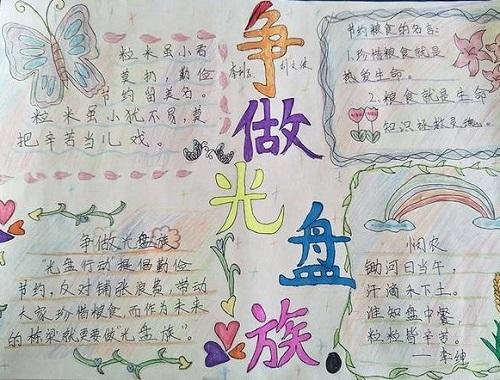 粒米虽小君
莫扔，勤俭
节约留美名。
粒米虽小犹不易，莫
把辛苦当儿戏。
争
做
光
盘
族
节约粮食的名言：
1.珍惜粮食就是
热爱生命。
2.粮食就是生命
知识拯救灵魂。
争做光盘族
"光盘行动"提倡勤俭
节约，反对铺张浪费，带动
大家珍惜粮食而作为未来
的栋梁就更要做"光盘族"。
悯农
锄河日当午，
汗滴禾下土。
谁知盘中餐，
粒粒皆辛苦。
——李绅